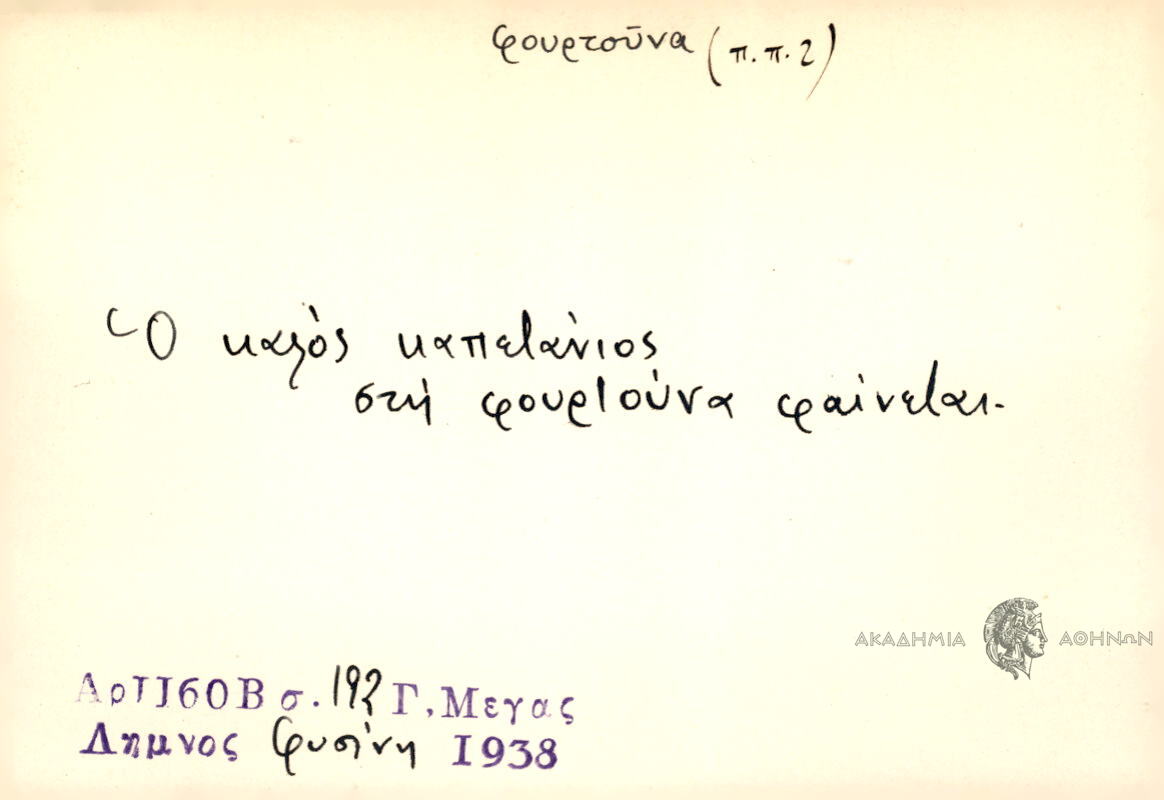 φουρτοῦνα (π.π.2)
Ὁ καλὸς καπετάνιος
στὴ φουρτούνα φαίνεται.
ΑΚΑΔΗΜΙΑ ΑΘΗΝΩΝ
σ. 192 Γ. Μεγας
Λημνος Φυσίνη 1938